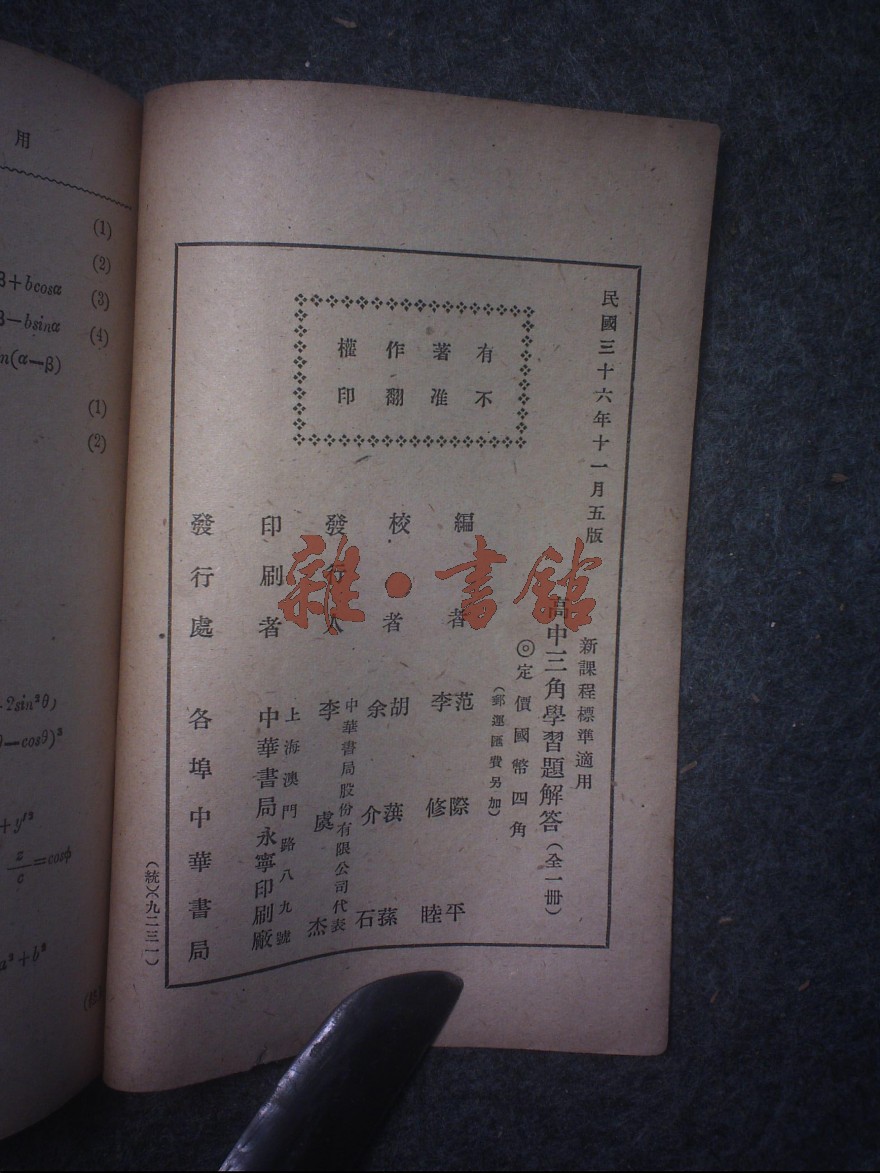 用
(1)
(2)
β+bcosα (3)
β−bsinα (4)
n(α−β)
(1)
(2)
2sin²θ)
θ−cosθ)²
+y'²
z/c=cosφ
a²+b²
民國三十六年十一月五版
有著作權
不准翻印
新課程標準適用
高中三角學習題解答(全一冊)
◎定價國幣四角
(郵運匯費另加)
編者 范際平
李修睦
校者 胡
余介石
發行人 李虞杰
中華書局股份有限公司代表
印刷者 上海澳門路八九號
中華書局永寧印刷廠
發行處 各埠中華書局
(統)(九二三一)
雜·書館